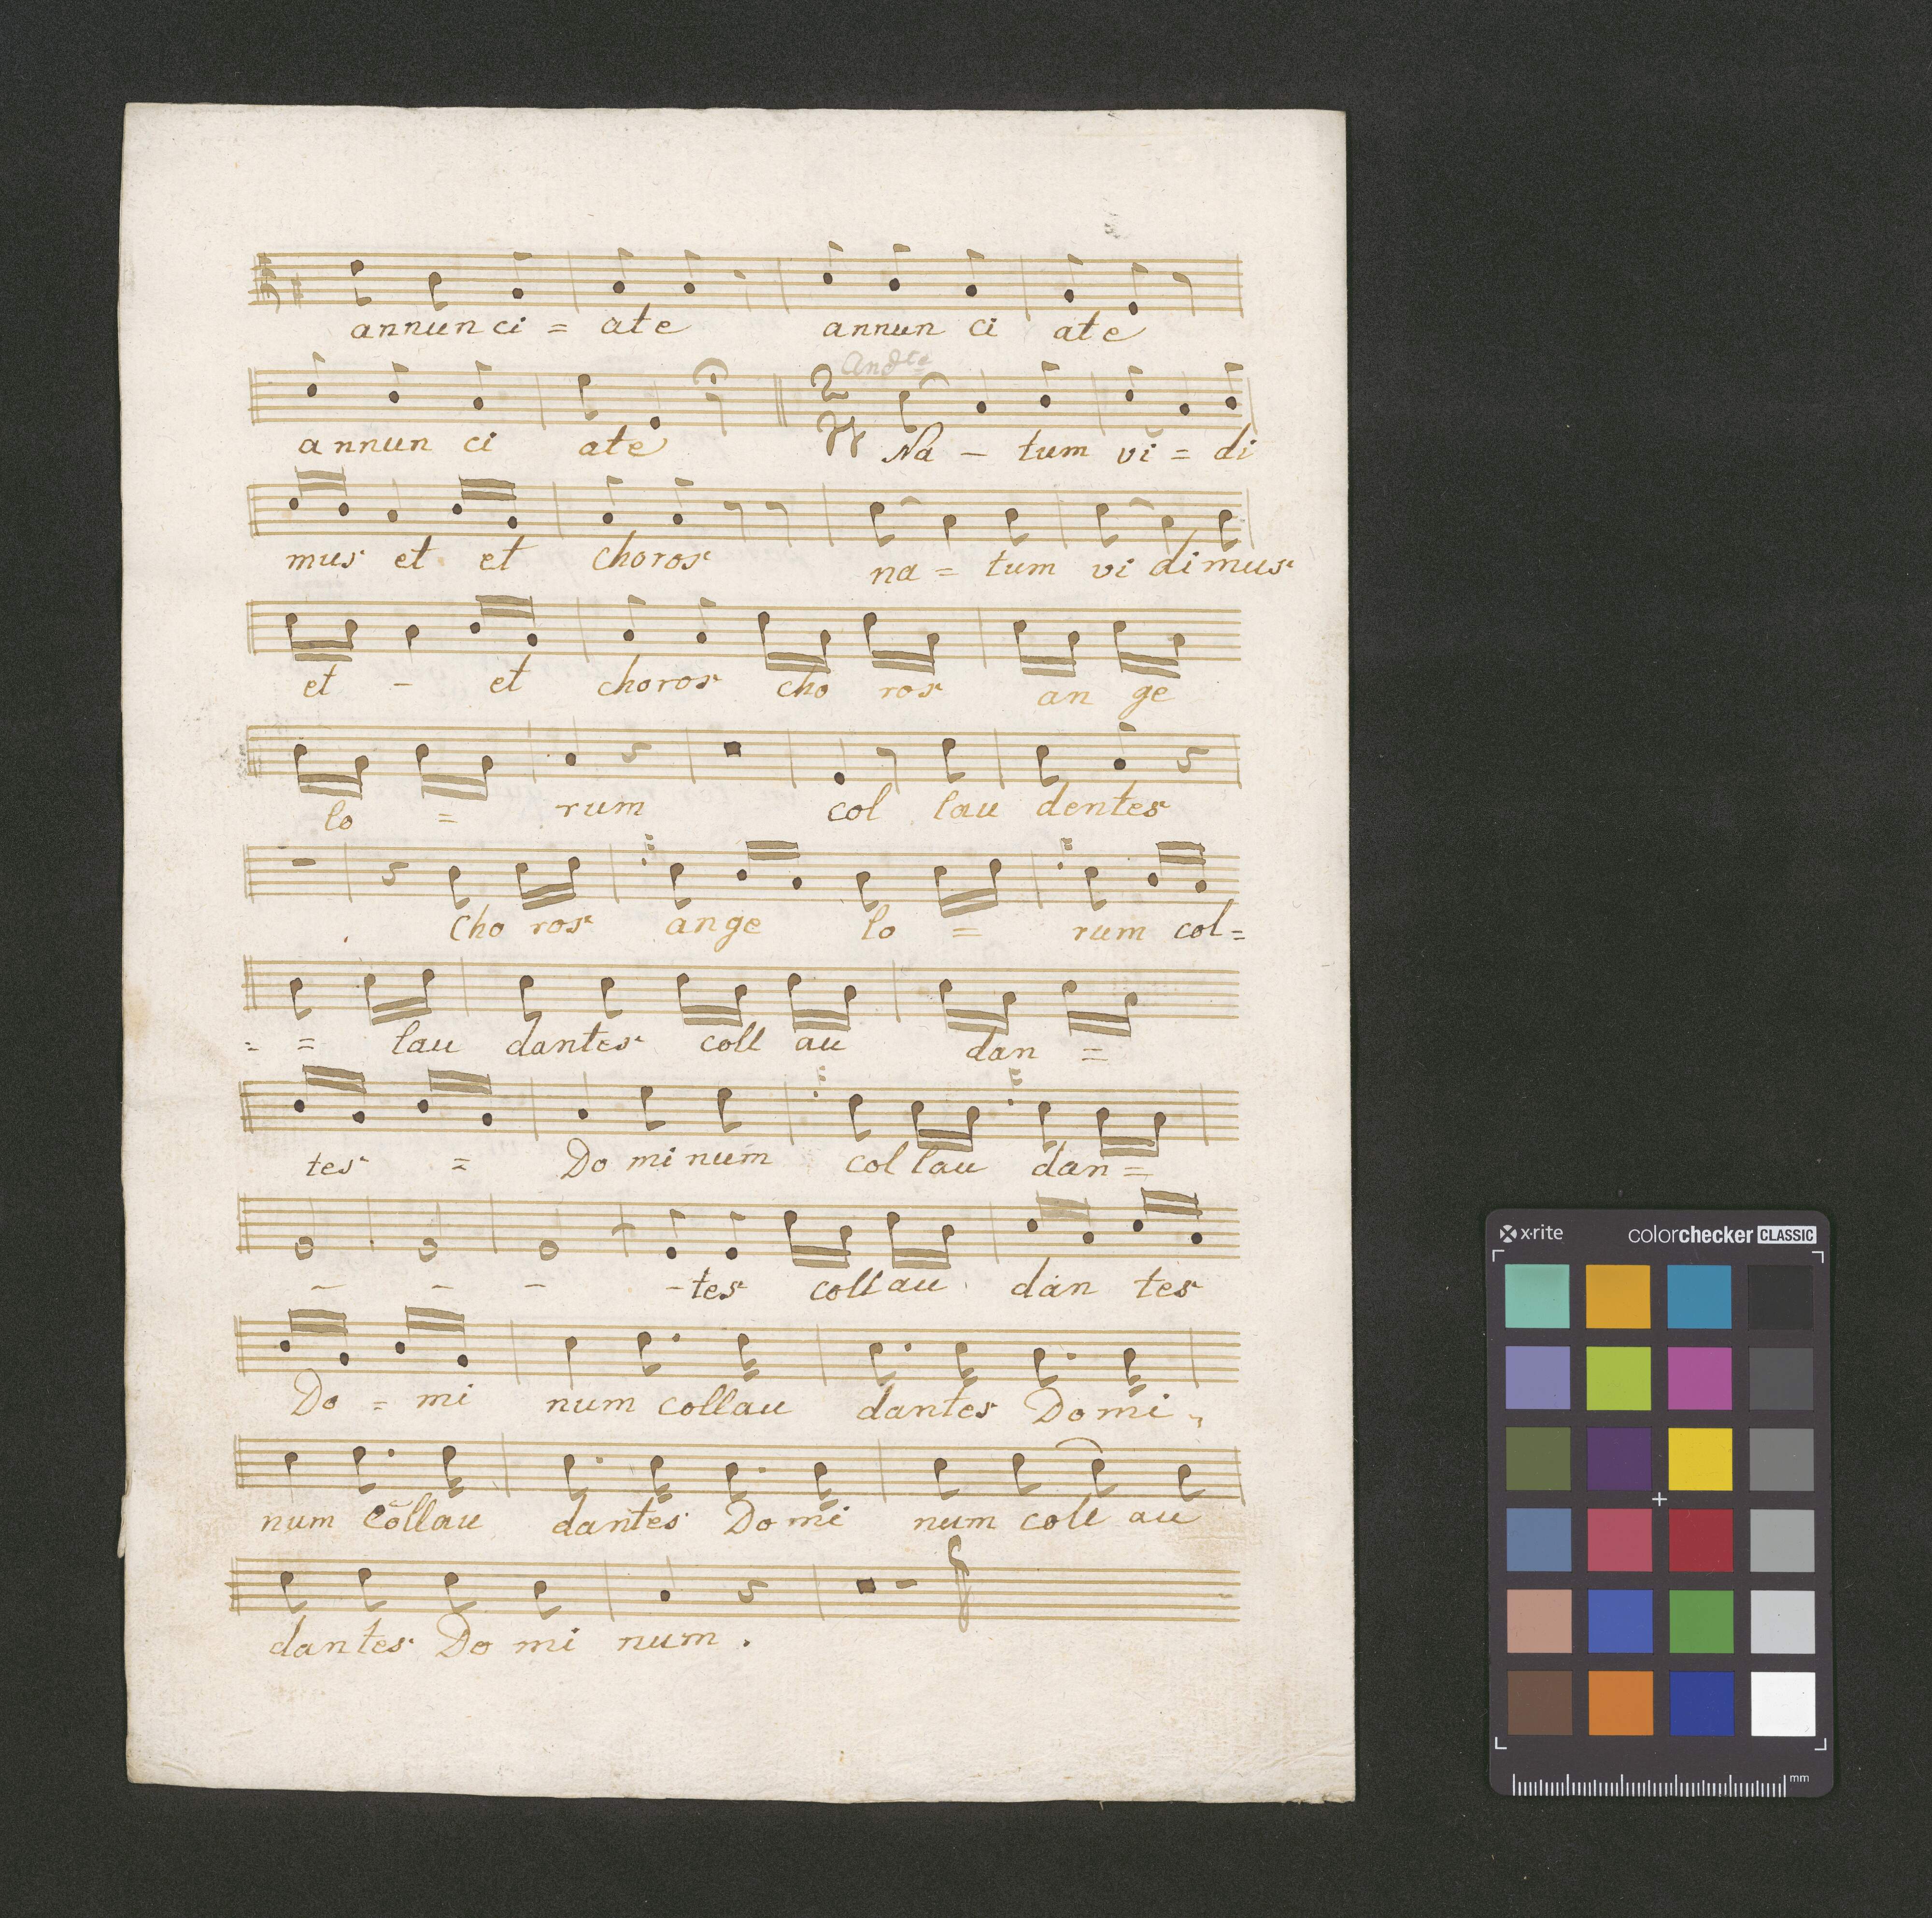 annun ci = ate annun ci ate
Andte
annun ci ate Na - tum vi = di
mus et et choros na = tum vi di mus
et - et choros cho ros an ge
lo = rum col lau dentes
cho ros ange lo = rum col=
= = lau dantes coll au dan =
tes = Do mi num col lau dan =
- - - -tes coll au dan tes
Do = mi num collau dantes Do mi
num collau dantes Do mi num coll au
dantes Do mi num .
x·rite colorchecker CLASSIC
mm